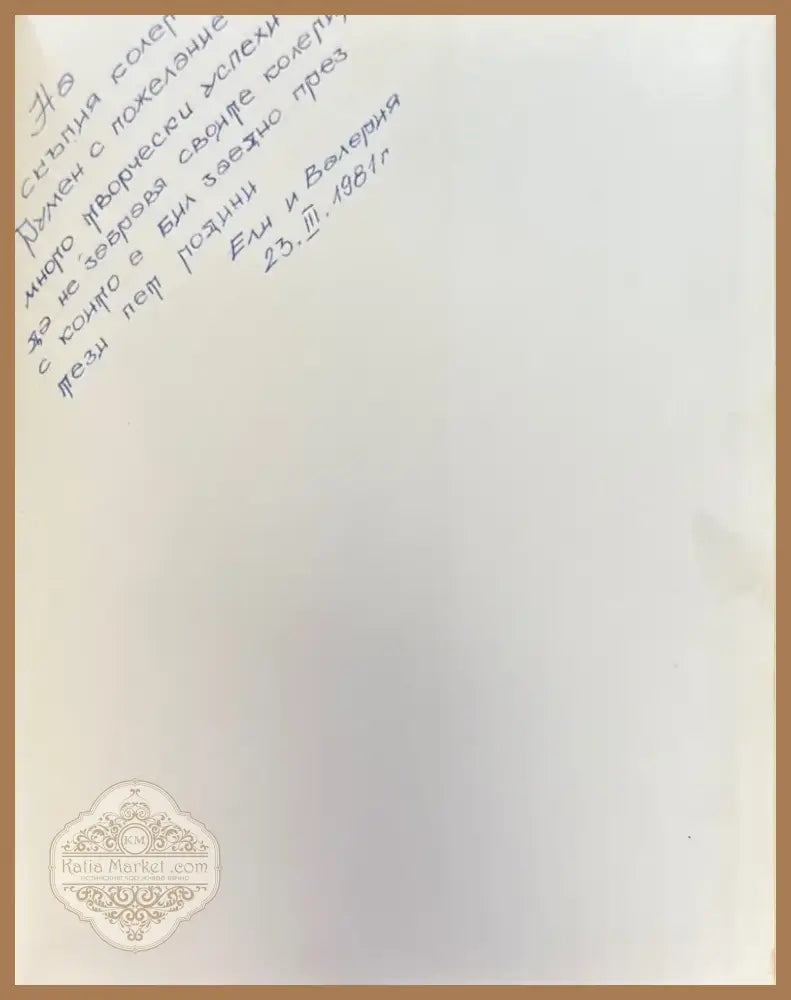 На
скъпия колег
Румен с пожелание
много творчески успехи
да не забравя своите колеги,
с които е бил заедно през
тези пет години
Ели и Валерия
23. III. 1981 г
KM
Katia Market .com